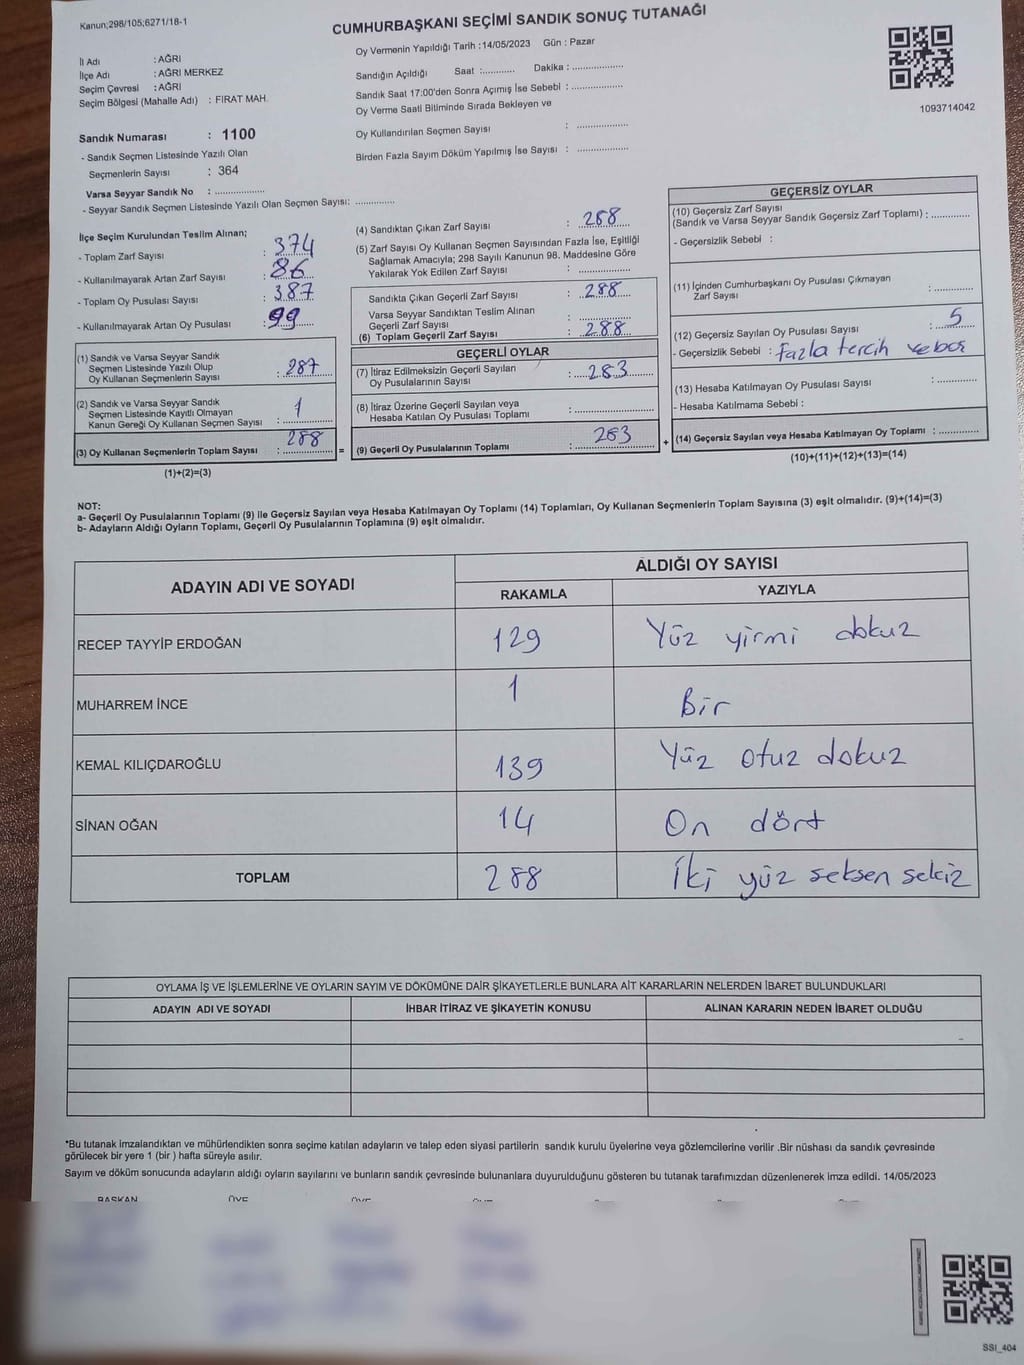 Kanun;298/105;6271/18-1
CUMHURBAŞKANI SEÇİMİ SANDIK SONUÇ TUTANAĞI
İl Adı : AĞRI
İlçe Adı : AĞRI MERKEZ
Seçim Çevresi : AĞRI
Seçim Bölgesi (Mahalle Adı) : FIRAT MAH.
Sandık Numarası : 1100
- Sandık Seçmen Listesinde Yazılı Olan
Seçmenlerin Sayısı : 364
Varsa Seyyar Sandık No : ..................
- Seyyar Sandık Seçmen Listesinde Yazılı Olan Seçmen Sayısı: ..............
Oy Vermenin Yapıldığı Tarih :14/05/2023 Gün : Pazar
Sandığın Açıldığı Saat :............ Dakika : ..................
Sandık Saat 17:00'den Sonra Açımış İse Sebebi : ..................
Oy Verme Saati Bitiminde Sırada Bekleyen ve
Oy Kullandırılan Seçmen Sayısı : ..................
Birden Fazla Sayım Döküm Yapılmış İse Sayısı : ..................
1093714042
İlçe Seçim Kurulundan Teslim Alınan;
- Toplam Zarf Sayısı : 374
- Kullanılmayarak Artan Zarf Sayısı : 86
- Toplam Oy Pusulası Sayısı : 387
- Kullanılmayarak Artan Oy Pusulası : 99
(1) Sandık ve Varsa Seyyar Sandık
Seçmen Listesinde Yazılı Olup
Oy Kullanan Seçmenlerin Sayısı : 287
(2) Sandık ve Varsa Seyyar Sandık
Seçmen Listesinde Kayıtlı Olmayan
Kanun Gereği Oy Kullanan Seçmen Sayısı : 1
(3) Oy Kullanan Seçmenlerin Toplam Sayısı : 288 =
(1)+(2)=(3)
(4) Sandıktan Çıkan Zarf Sayısı : 288
(5) Zarf Sayısı Oy Kullanan Seçmen Sayısından Fazla İse, Eşitliği
Sağlamak Amacıyla; 298 Sayılı Kanunun 98. Maddesine Göre
Yakılarak Yok Edilen Zarf Sayısı : ..................
Sandıkta Çıkan Geçerli Zarf Sayısı : 288
Varsa Seyyar Sandıktan Teslim Alınan
Geçerli Zarf Sayısı : ..................
(6) Toplam Geçerli Zarf Sayısı : 288
GEÇERLİ OYLAR
(7) İtiraz Edilmeksizin Geçerli Sayılan
Oy Pusulalarının Sayısı : 283
(8) İtiraz Üzerine Geçerli Sayılan veya
Hesaba Katılan Oy Pusulası Toplamı : ..................
(9) Geçerli Oy Pusulalarının Toplamı : 283 +
GEÇERSİZ OYLAR
(10) Geçersiz Zarf Sayısı
(Sandık ve Varsa Seyyar Sandık Geçersiz Zarf Toplamı) : ..............
- Geçersizlik Sebebi :
(11) İçinden Cumhurbaşkanı Oy Pusulası Çıkmayan
Zarf Sayısı : ..............
(12) Geçersiz Sayılan Oy Pusulası Sayısı : 5
- Geçersizlik Sebebi : fazla tercih ve boş
(13) Hesaba Katılmayan Oy Pusulası Sayısı : ..............
- Hesaba Katılmama Sebebi :
(14) Geçersiz Sayılan veya Hesaba Katılmayan Oy Toplamı : ..............
(10)+(11)+(12)+(13)=(14)
NOT:
a- Geçerli Oy Pusulalarının Toplamı (9) ile Geçersiz Sayılan veya Hesaba Katılmayan Oy Toplamı (14) Toplamları, Oy Kullanan Seçmenlerin Toplam Sayısına (3) eşit olmalıdır. (9)+(14)=(3)
b- Adayların Aldığı Oyların Toplamı, Geçerli Oy Pusulalarının Toplamına (9) eşit olmalıdır.
ADAYIN ADI VE SOYADI ALDIĞI OY SAYISI
RAKAMLA YAZIYLA
RECEP TAYYİP ERDOĞAN 129 Yüz yirmi dokuz
MUHARREM İNCE 1 Bir
KEMAL KILIÇDAROĞLU 139 Yüz otuz dokuz
SİNAN OĞAN 14 On dört
TOPLAM 288 İki yüz seksen sekiz
OYLAMA İŞ VE İŞLEMLERİNE VE OYLARIN SAYIM VE DÖKÜMÜNE DAİR ŞİKAYETLERLE BUNLARA AİT KARARLARIN NELERDEN İBARET BULUNDUKLARI
ADAYIN ADI VE SOYADI İHBAR İTİRAZ VE ŞİKAYETİN KONUSU ALINAN KARARIN NEDEN İBARET OLDUĞU
*Bu tutanak imzalandıktan ve mühürlendikten sonra seçime katılan adayların ve talep eden siyasi partilerin sandık kurulu üyelerine veya gözlemcilerine verilir .Bir nüshası da sandık çevresinde
görülecek bir yere 1 (bir ) hafta süreyle asılır.
Sayım ve döküm sonucunda adayların aldığı oyların sayılarını ve bunların sandık çevresinde bulunanlara duyurulduğunu gösteren bu tutanak tarafımızdan düzenlenerek imza edildi. 14/05/2023
BAŞKAN ÜYE ÜYE ÜYE
SSI_404